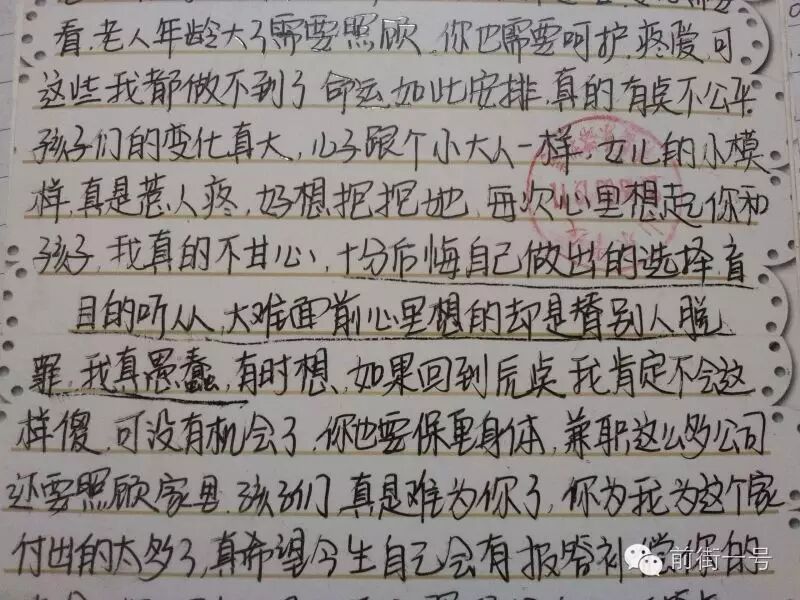 看.老人年龄大了需要照顾.你也需要呵护.疼爱.可
这些我都做不到了命运如此安排.真的有点不公平.
孩子们的变化真大,儿子跟个小大人一样.女儿的小模
样,真是惹人疼.好想抱抱她,每次心里想起你和
孩子,我真的不甘心,十分后悔自己做出的选择,盲
目的听从,大难面前心里想的却是替别人脱
罪,我真愚蠢,有时想,如果回到原点我肯定不会这
样傻,可没有机会了.你也要保重身体,兼职这么多公司
还要照顾家里.孩子们,真是难为你了,你为我为这个家
付出的太多了,真希望今生自己会有报答补偿你的
前街一号